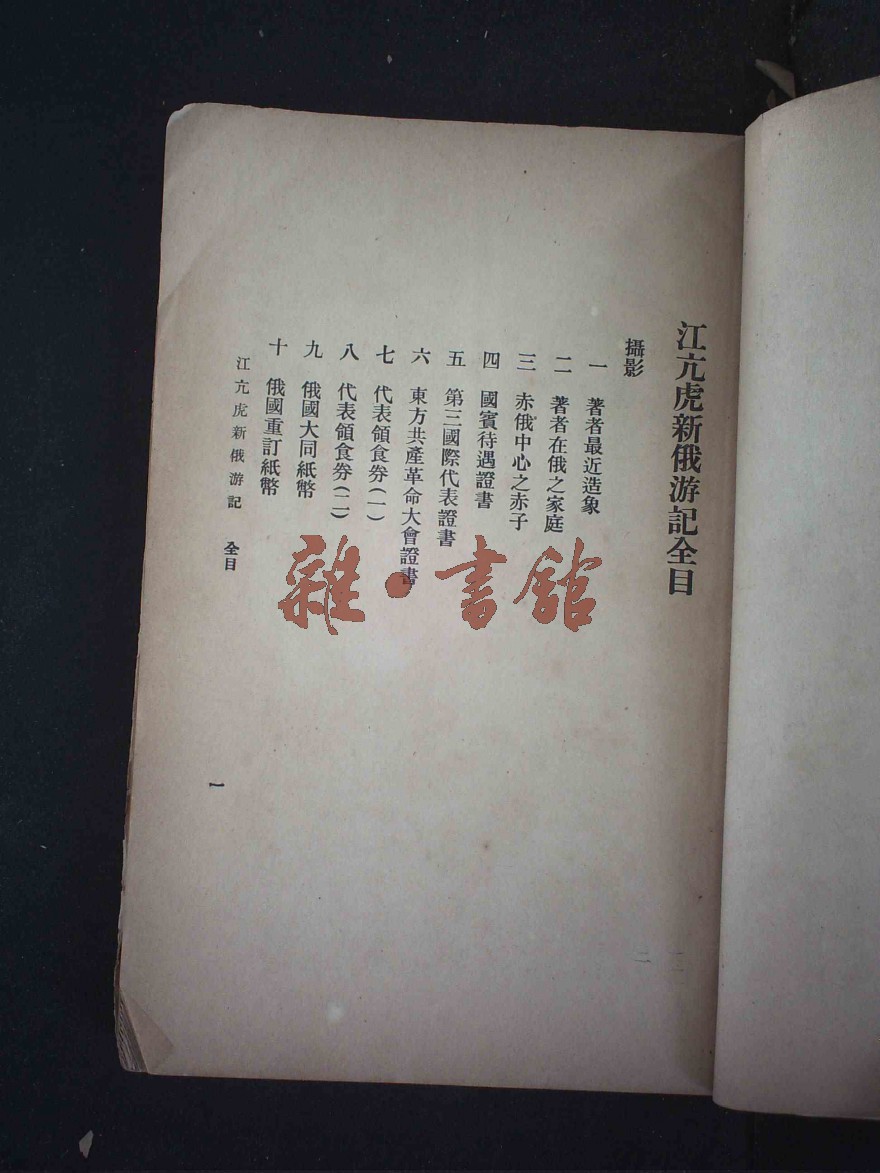 江亢虎新俄游記全目
攝影
一 著者最近造象
二 著者在俄之家庭
三 赤俄中心之赤子
四 國賓待遇證書
五 第三國際代表證書
六 東方共產革命大會證書
七 代表領食券(一)
八 代表領食券(二)
九 俄國大同紙幣
十 俄國重訂紙幣
江亢虎新俄游記 全目
一
雜·書館